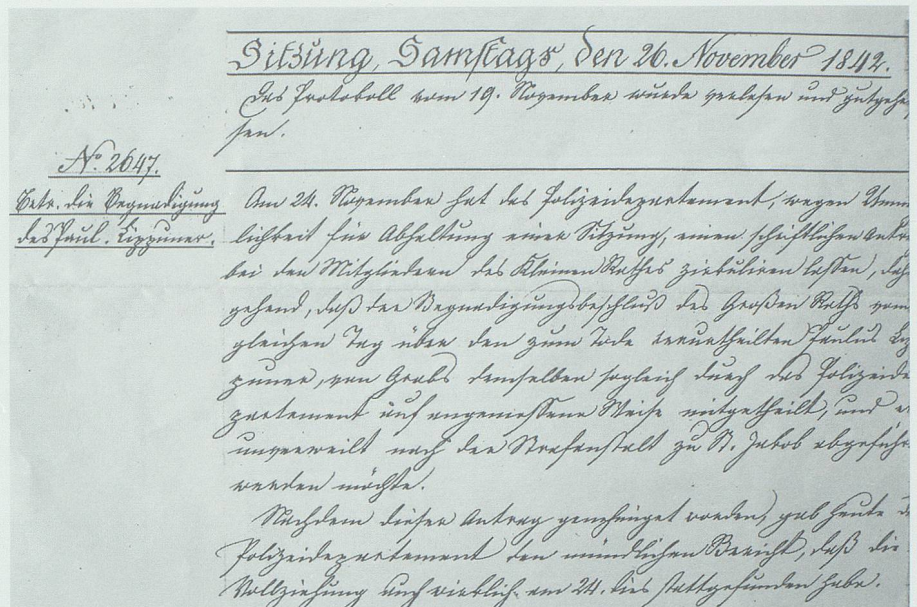 Sitzung, Samstags, den 26. November 1842.
Das Protokoll vom 19. November wurde verlesen und gutgehei
sen.
No. 2647.
Betr. die Begnadigung
des Paul. Lippuner.
Am 24. November hat das Polizeidepartement, wegen Unmög
lichkeit für Abhaltung einer Sitzung, einen schriftlichen Antra
bei den Mitgliedern des Kleinen Rathes zirkuliren lassen, dah
gehend, daß der Begnadigungsbeschluß des Großen Raths vom
gleichen Tag über den zum Tode verurtheilten Paulus Lip
puner, von Grabs demselben sogleich durch das Polizeide
partement auf angemessene Weise mitgetheilt, und er
unverweilt nach der Strafanstalt zu St. Jakob abgeführ
werden möchte.
Nachdem dieser Antrag genehmiget worden, gab heute d
Polizeidepartement den mündlichen Bericht, daß die
Vollziehung auch wirklich am 24. dies stattgefunden habe.